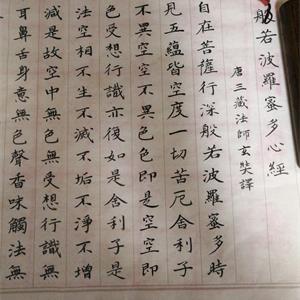 般若波羅蜜多心經
唐三藏法師玄奘譯
自在菩薩行深般若波羅蜜多時
見五蘊皆空度一切苦厄舍利子
不異空空不異色色即是空空即
色受想行識亦復如是舍利子是
法空相不生不滅不垢不淨不增
減是故空中無色無受想行識無
耳鼻舌身意無色聲香味觸法無